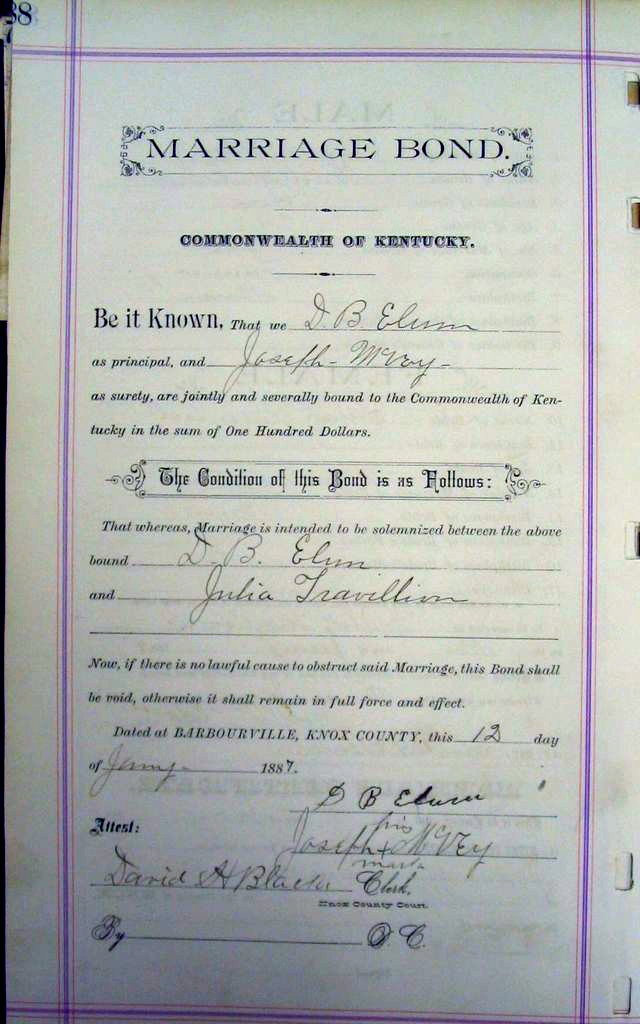 38
MARRIAGE BOND.
COMMONWEALTH OF KENTUCKY.
Be it Known, That we D. B. Elum
as principal, and Joseph McVey
as surety, are jointly and severally bound to the Commonwealth of Ken-
tucky in the sum of One Hundred Dollars.
The Condition of this Bond is as Follows:
That whereas, Marriage is intended to be solemnized between the above
bound D. B. Elum
and Julia Travillion
Now, if there is no lawful cause to obstruct said Marriage, this Bond shall
be void, otherwise it shall remain in full force and effect.
Dated at BARBOURVILLE, KNOX COUNTY, this 12 day
of Jany 1887.
D B Elum
his
Attest: Joseph X McVEy
mark
David A Black Clerk.
Knox County Court.
By D. C.